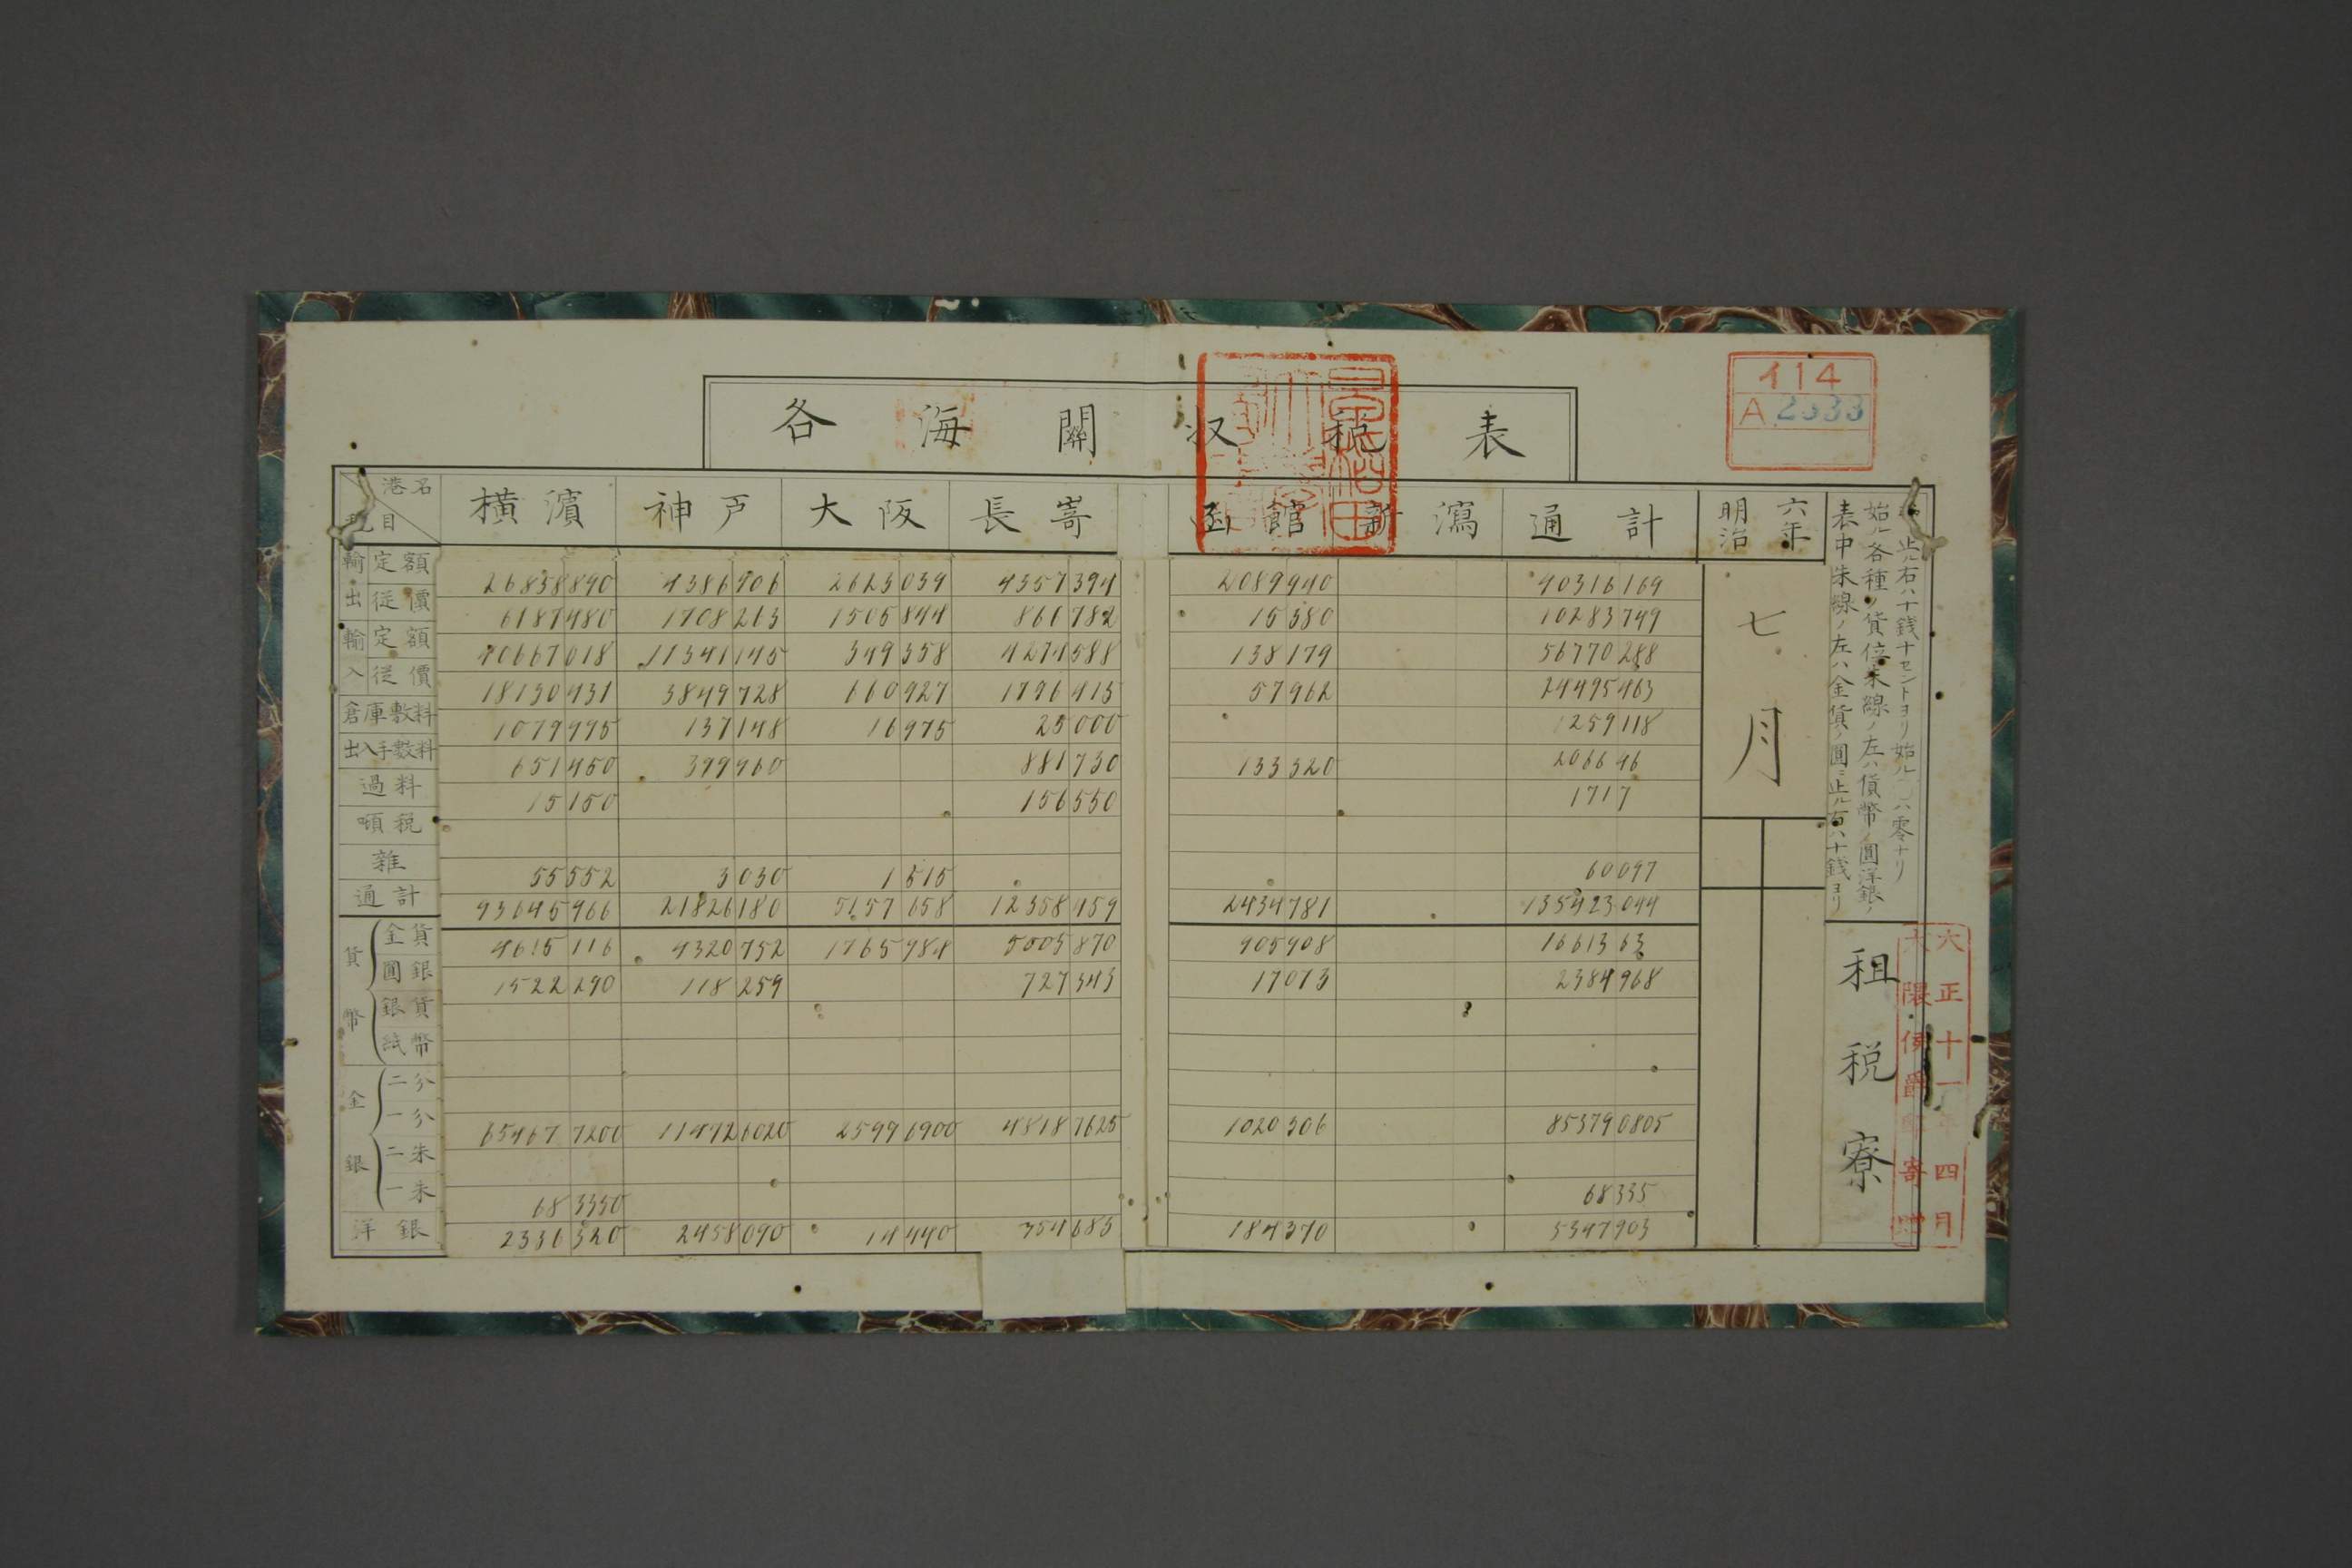 各海關収税表
イ14
A 2333
港名
税目
横濵 神戸 大阪 長嵜 函館 新瀉 通計
明治六年
七月
輸出 定額 26838 890 4386 906 2623 039 4357 394 2089 940 40316 169
従價 6187 480 1708 263 1505 844 861 782 15 380 10283 749
輸入 定額 40667 018 11341 145 349 358 4274 588 138 179 56770 288
従價 18130 431 3849 728 660 927 1796 415 57 962 24495 463
倉庫敷料 1079 995 137 148 16 975 25 000 1259 118
出入手數料 651 450 399 960 881 730 133 320 2066 46
過料 15 150 156 550 171 7
噸税
雜 55 552 3 030 1 515 60 097
通計 93645 966 21826 180 5157 658 12358 459 2434 781 135423 044
貨幣 金貨 4615 116 4320 752 1765 984 5005 870 905 908 16613 63
圓銀 1522 290 118 259 727 343 17 073 2384 968
銀貨
紙幣
金銀 二分
一分 65467 7200 11472 6020 2599 6900 4818 7625 1020 306 85379 0805
二朱
一朱 68 3350 68 335
洋銀 2336 320 2458 090 14 440 354 683 184 370 5347 903
表中朱線ノ左ハ金貨ノ圓ニ止ル右ハ十銭ヨリ
始ル各種ノ貨位朱線ノ左ハ貨幣ノ圓洋銀ノ
止ル右ハ十銭十セントヨリ始ル〇ハ零ナリ
租税寮
大正十一年四月
大隈侯爵家寄贈